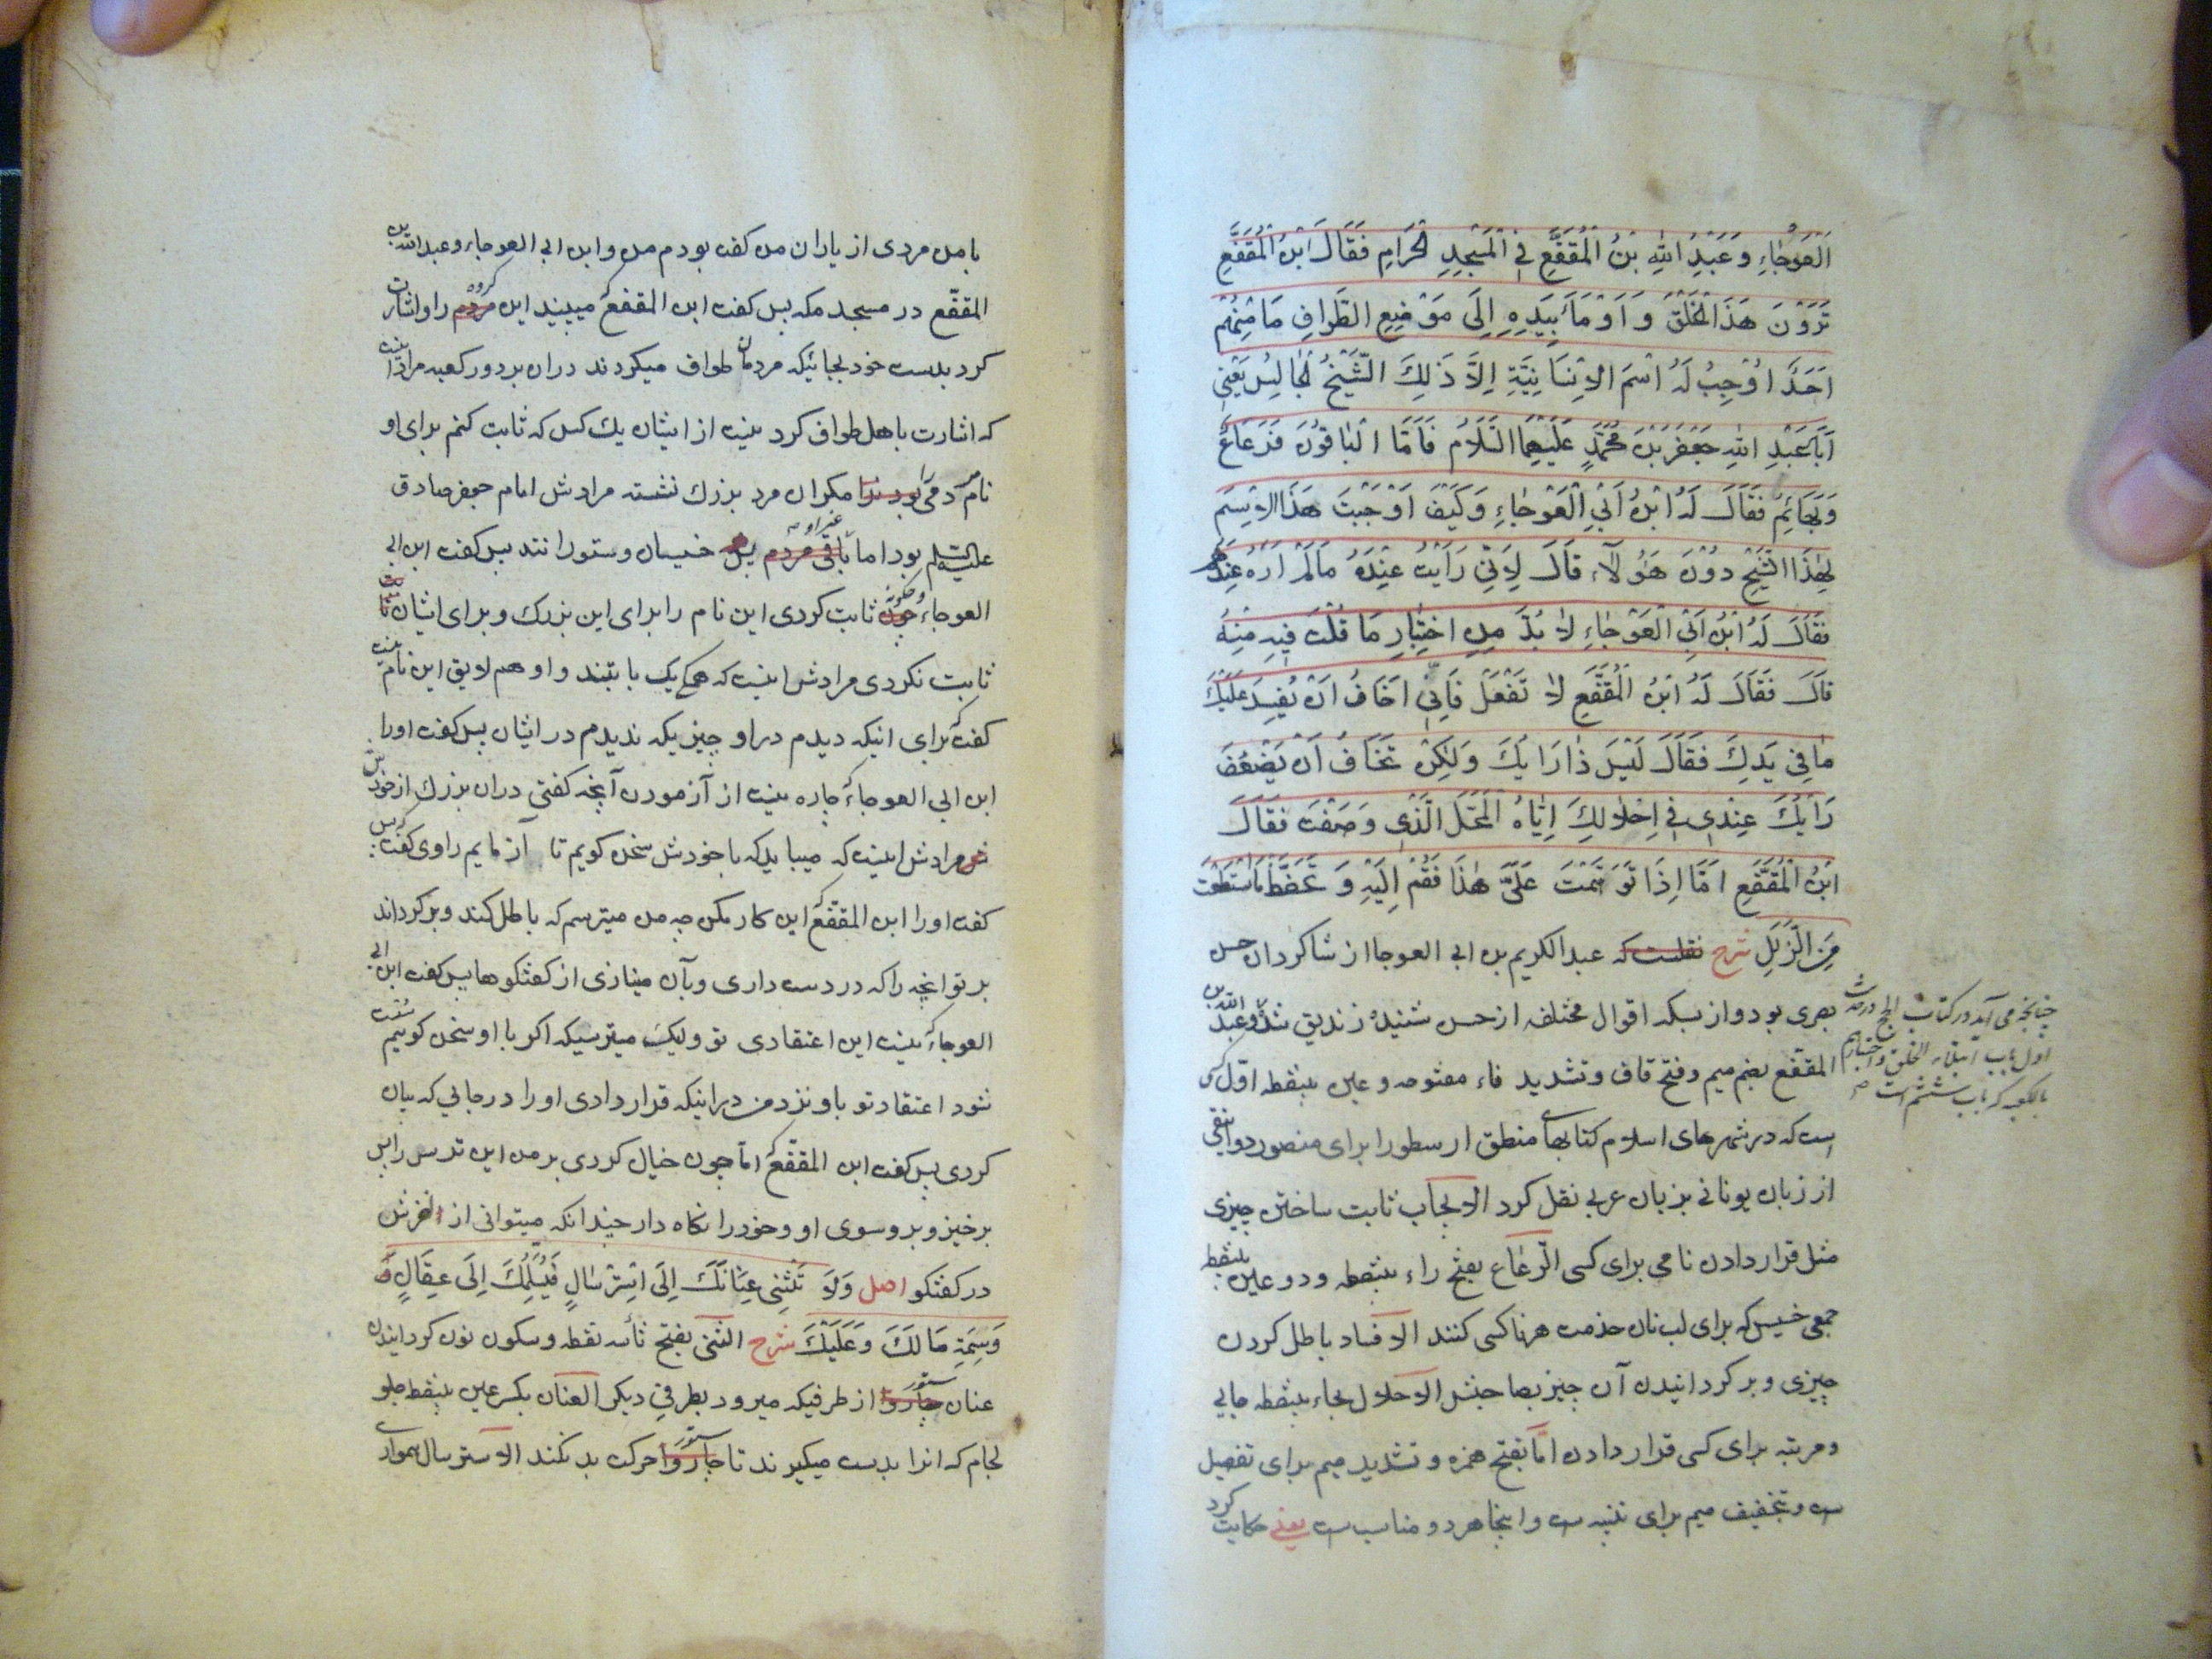 الْعَوْجَاءِ وَعَبْدِ اللّٰهِ بْنُ الْمُقَفَّعِ فِي الْمَسْجِدِ الْحَرَامِ فَقَالَ ابْنُ الْمُقَفَّعِ
تَرَوْنَ هَذَا الْخَلْقَ وَ اَوْمَأَ بِيَدِهِ إِلَى مَوْضِعِ الطَّوَافِ مَا مِنْهُمْ
اَحَدٌ اُوْجِبُ لَهُ اسْمَ الاِنْسَانِيَّةِ اِلاَّ ذَلِكَ الشَّيْخُ الْجَالِسُ يَعْنِي
اَبَا عَبْدِ اللّٰهِ جَعْفَرَ بْنَ مُحَمَّدٍ عَلَيْهِمَا السَّلَامُ فَاَمَّا الْبَاقُونَ فَرَعَاعٌ
وَ بَهَائِمُ فَقَالَ لَهُ ابْنُ اَبِي الْعَوْجَاءِ وَ كَيْفَ اَوْجَبْتَ هَذَا الاِسْمَ
لِهٰذَا الشَّيْخِ دُوْنَ هَؤُلَآءِ قَالَ لِاَنِّي رَاَيْتُ عِنْدَهُ مَا لَمْ اَرَهُ عِنْدَهُمْ
فَقَالَ لَهُ ابْنُ اَبِي الْعَوْجَاءِ لَا بُدَّ مِنِ اخْتِبَارِ مَا قُلْتَ فِيهِ مِنْهُ
قَالَ فَقَالَ لَهُ ابْنُ الْمُقَفَّعِ لَا تَفْعَلْ فَاِنِّي اَخَافُ اَنْ يُفْسِدَ عَلَيْكَ
مَا فِي يَدِكَ فَقَالَ لَيْسَ ذَا رَايَكَ وَلٰكِنْ تَخَافُ اَنْ يَضْعُفَ
رَايُكَ عِنْدِي فِي اِحْلَالِكَ اِيَّاهُ الْمَحَلَّ الَّذِي وَصَفْتَ فَقَالَ
ابْنُ الْمُقَفَّعِ اَمَّا اِذَا تَوَهَّمْتَ عَلَيَّ هٰذَا فَقُمْ اِلَيْهِ وَ تَحَفَّظْ مَا اسْتَطَعْتَ
مِنَ الزَّلَلِ شرح نقلست که عبد الکریم بن ابی العوجا از شاکردان حسن
بصری بود و از بسکه اقوال مختلفه از حسن شنید زندیق شد و عبد الله بن
المقفع بضم میم و فتح قاف و تشدید فاء مفتوحه و عین بینقطه اوّل کسی
است که در شهرهای اسلام کتابهای منطق ارسطو را برای منصور دوانقی
از زبان یونانی بزبان عربی نقل کرد الایجاب ثابت ساختن چیزی
مثل قرار دادن نامی برای کسی الرّعاع بفتح راء بینقطه و دو عین بینقطه
جمعی خسیس که برای لب نان خدمت هر ناکسی کنند الافساد باطل کردن
چیزی و برکردانیدن آن چیز بصاحبش الاحلال بحاء بینقطه جایی
و مرتبه برای کسی قرار دادن امّا بفتح همزه و تشدید میم برای تفصیل
ست و تخفیف میم برای تنبیه ست و اینجا هر دو مناسب ست یعنی حکایت کرد
چنانچه می آید در کتاب الحج در حدیث
اول باب ابتلاء الخلق و اختبارهم
بالکعبه که باب ششم است
با من مردی از یاران من کفت بودم من و ابن ابی العوجاء و عبد الله بن
المقفّع در مسجد مکه پس کفت ابن المقفع میبینید این مردم کروه را و اشارت
کرد بدست خود بجائیکه مردمان طواف میکردند دران بر دور کعبه مراد اینست
که اشارت باهل طواف کرد نیست از ایشان یک کس که ثابت کنم برای او
نام آدمی را مکر ان مرد بزرک نشسته مرادش امام جعفر صادق
علیه السلم بود اما باقی مردم غیر او پس خسیسان و ستورانند پس کفت ابن ابی
العوجاء چون و چکونه ثابت کردی این نام را برای این بزرک و برای ایشان
ثابت نکردی مرادش اینست که همه یک بابتند و او هم لایق این نام نیست
کفت برای انیکه دیدم در او چیزیکه ندیدم در ایشان پس کفت اورا
ابن ابی العوجاء چاره نیست از آزمودن آنچه کفتی دران بزرک از خودش
مرادش اینست که میباید که با خودش سخن کویم تا آزمایم راوی کفت پس
کفت اورا ابن المقفّع این کار مکن چه من میترسم که باطل کند و برکرداند
بر تو انچه را که در دست داری و بآن مینازی از کفتکوها پس کفت ابن ابی
العوجاء نیست این اعتقادی تو ولیکن میترسیکه اکر با او سخن کویم سست
شود اعتقاد تو باو نزد من در اینکه قرار دادی اورا در جایی که بیان
کردی پس کفت ابن المقفع امّا چون خیال کردی بر من این ترس را پس
برخیز و برو سوی او و خود را نکاه دار چندانکه میتوانی از لغزش
در کفتکو اصل وَلَا تَثْنِي عِنَانَكَ اِلَى اسْتِرْسَالٍ فَيُسَلِّمَكَ اِلَى عِقَالٍ
وَسِمَةِ مَا لَكَ وَ عَلَيْكَ شرح الثنی بفتح ثاء سه نقطه و سکون نون کردانیدن
عنان چاروا ستور از طرفیکه میرود بطرف دیکر العنان بکسر عین بینقطه جلو
لجام که انرا بدست میکیرند تا چاروا ستور حرکت بد نکند الاسترسال همواری